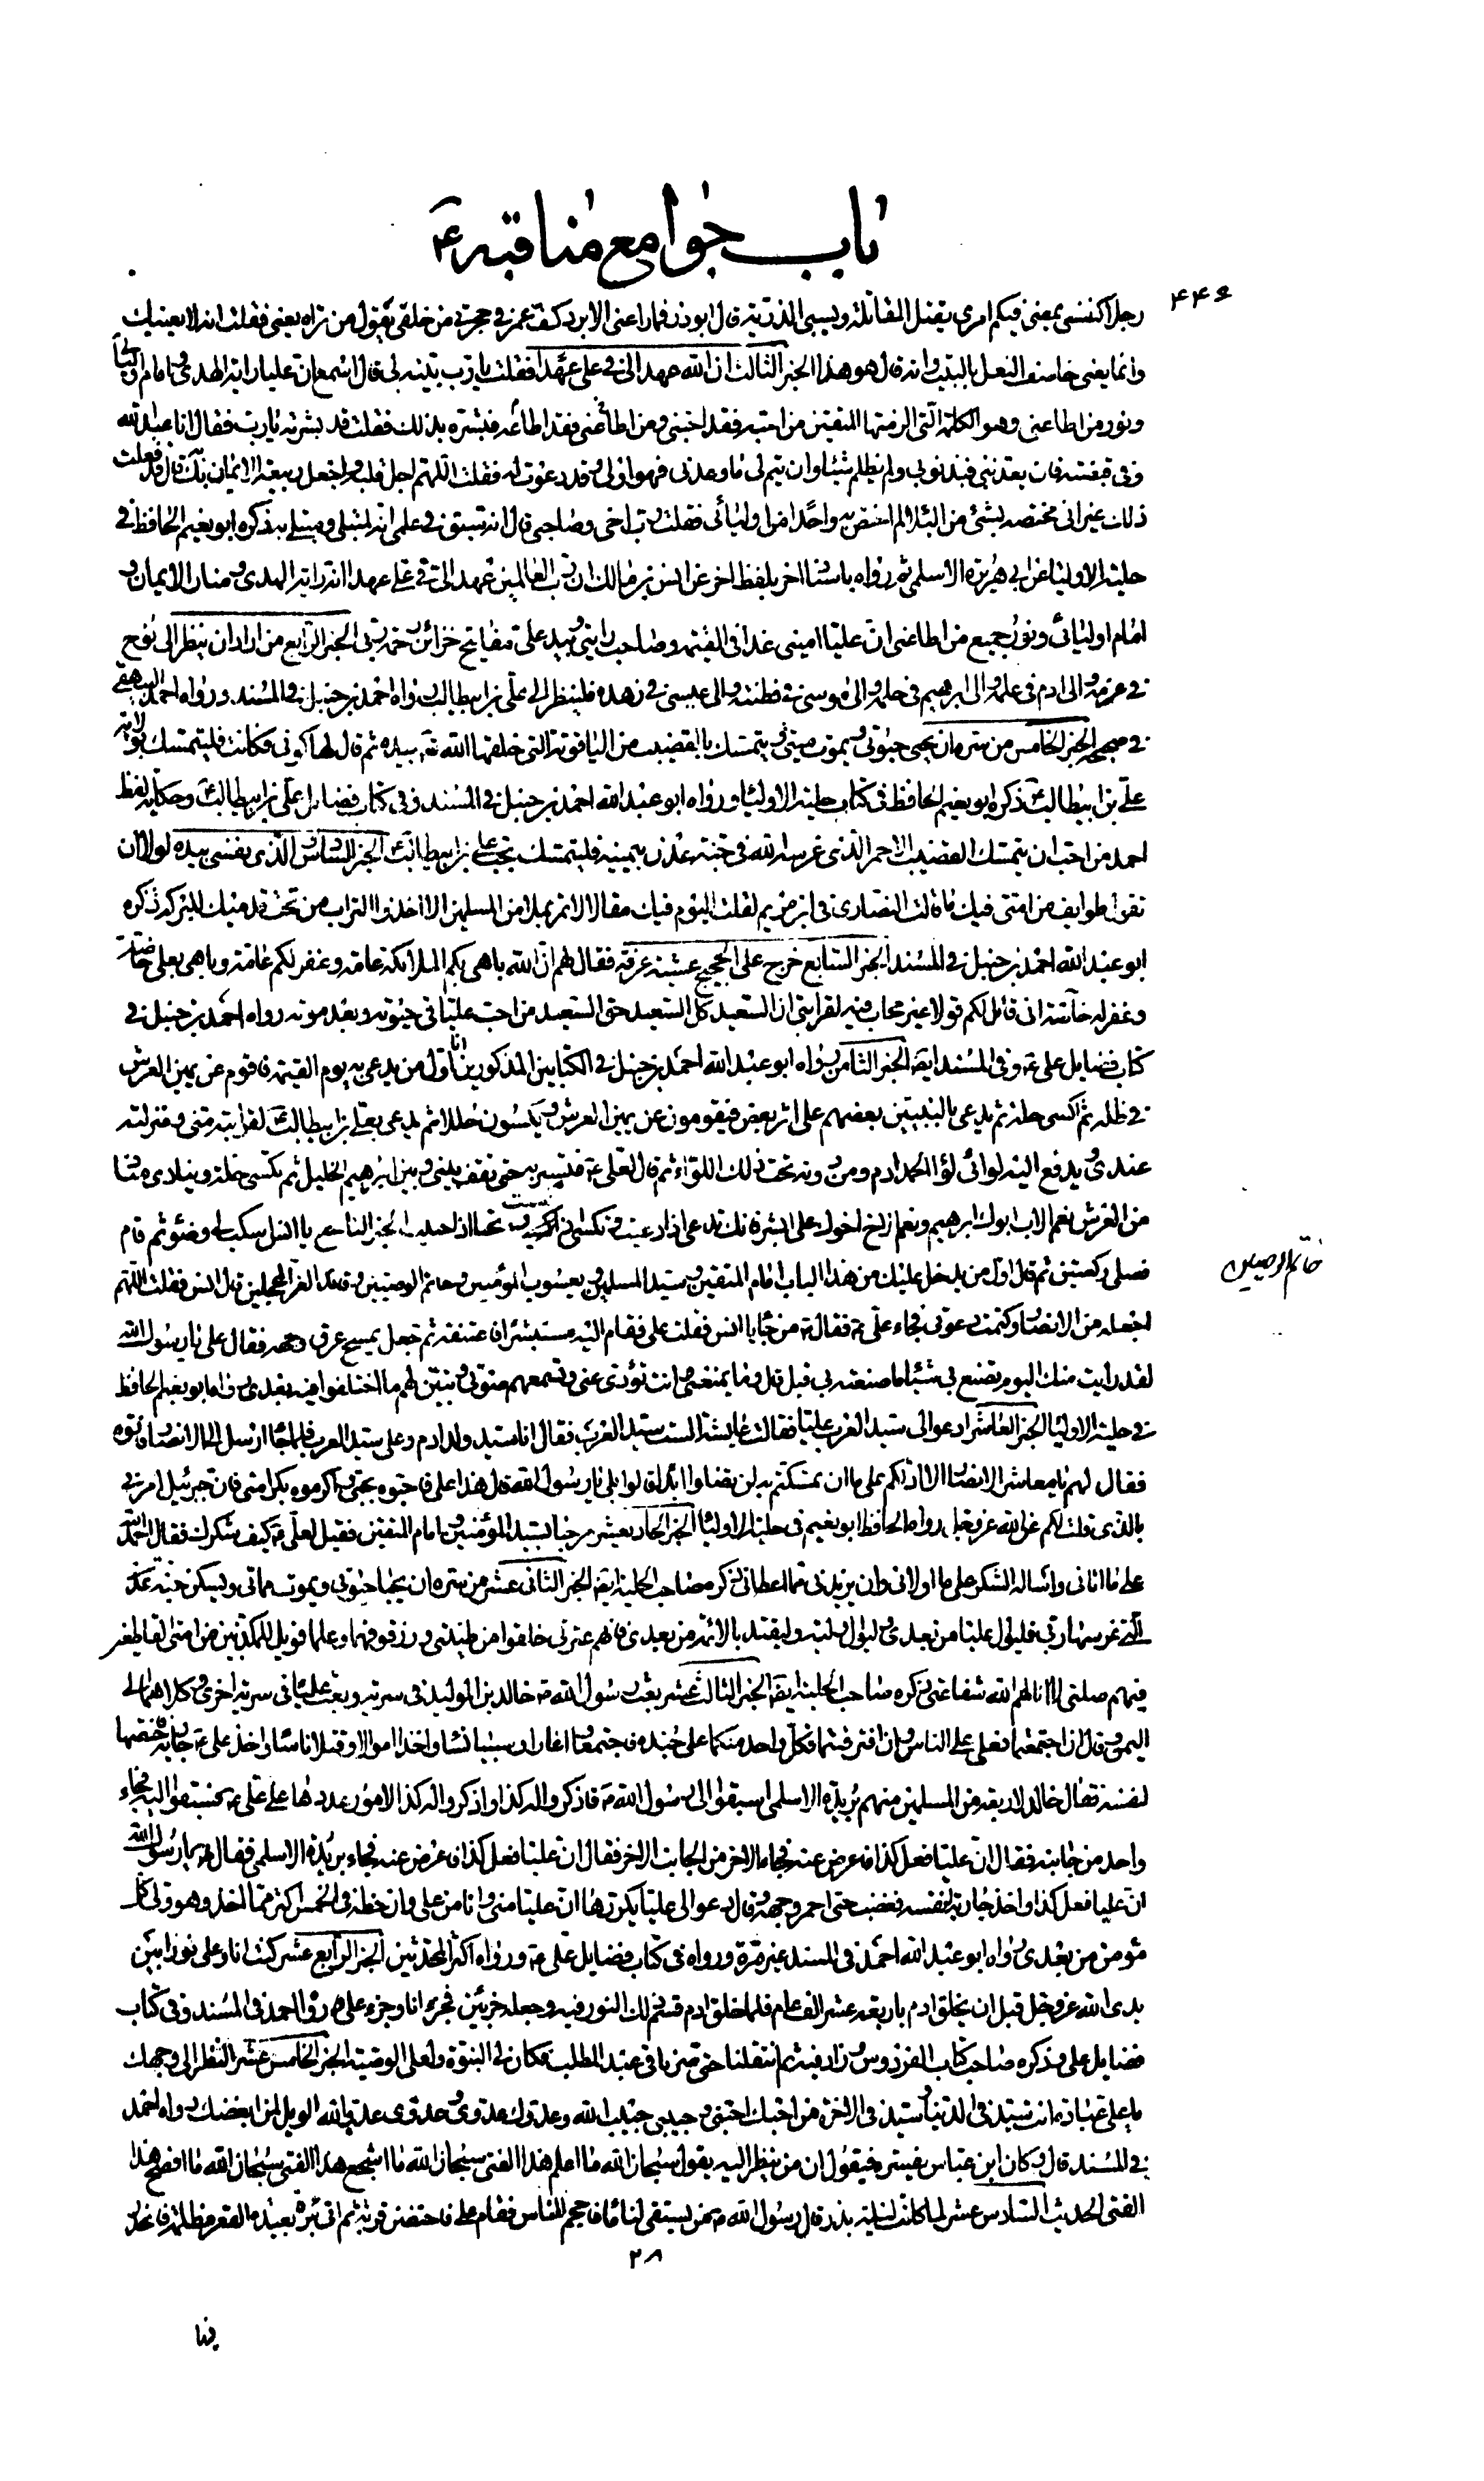 باب جوامع مناقبه ع
۴۴۶
رجلا كنفسى يمضى فيكم امرى يقتل المقاتلة ويسبى الذرية قال ابو ذر فما راعنى الا برد كف عمر فى حجزتى من خلفى يقول من تراه يعنى فقلت انه لا يعنيك
وانما يعنى خاصف النعل بالبيت وانه قال هو هذا الخبر الثالث ان الله عهد الى فى على عهدا فقلت يا رب بينه لى قال اسمع ان عليا راية الهدى وامام اوليائى
ونور من اطاعنى وهو الكلمة التى الزمتها المتقين من احبه فقد احبنى ومن اطاعه فقد اطاعنى فبشره بذلك فقلت قد بشرته يا رب فقال انا عبد الله
وفى قبضته فان يعذبنى فبذنوبى ولم يظلم شيئا وان يتم لى ما وعدنى فهو اولى وقد دعوت له فقلت اللهم اجل قلبه واجعل ربيعه الايمان بك قال قد فعلت
ذلك غير انى مختصه بشئ من البلاء لم اختص به واحدا من اوليائى فقلت رب اخى وصاحبى قال انه سبق فى علمى انه لمبتلى ومبتلى به ذكره ابو نعيم الحافظ فى
حلية الاولياء عن ابى هريرة الاسلمى ثم رواه باسناد اخر بلفظ اخر عن انس بن مالك ان رب العالمين عهد الى فى على عهدا انه راية الهدى ومنار الايمان و
امام اوليائى ونور جميع من اطاعنى ان عليا امينى غدا فى القيمة وصاحب رايتى وبيد على مفاتيح خزائن رحمة ربى الخبر الرابع من اراد ان ينظر الى نوح
فى عزمه والى ادم فى علمه والى ابرهيم فى حلمه والى موسى فى فطنته والى عيسى فى زهده فلينظر الى على بن ابيطالب رواه احمد بن حنبل فى المسند ورواه احمد البيهقى
فى صحيحه الخبر الخامس من سره ان يحيى حيوتى ويموت ميتتى ويتمسك بالقضيب من الياقوتة التى خلقها الله تع بيده ثم قال لها كونى فكانت فليتمسك بولاية
على بن ابيطالب ذكره ابو نعيم الحافظ فى كتاب حلية الاولياء ورواه ابو عبد الله احمد بن حنبل فى المسند وفى كتاب فضايل على بن ابيطالب وحكاية لفظ
احمد من احب ان يتمسك القضيب الاحمر الذى غرسه الله فى جنة عدن بيمينه فليتمسك بحب على بن ابيطالب الخبر السادس والذى نفسى بيده لولا ان
تقول طوايف من امتى فيك ما قالت النصارى فى ابن مريم لقلت اليوم فيك مقالا لا تمر بملا من المسلمين الا اخذوا التراب من تحت قدميك للبركة ذكره
ابو عبد الله احمد بن حنبل فى المسند الخبر السابع خرج على الحجيج عشية عرفة فقال لهم ان الله باهى بكم الملائكة عامة وغفر لكم عامة وباهى بعلى خاصة
وغفر له خاصة انى قائل لكم قولا غير محاب فيه لقرابتى ان السعيد كل السعيد حق السعيد من احب عليا فى حيوته وبعد موته رواه احمد بن حنبل فى
كتاب فضايل على ع وفى المسند ايضا الخبر الثامن رواه ابو عبد الله احمد بن حنبل فى الكتابين المذكورين انا اول من يدعى به يوم القيمة فاقوم عن يمين العرش
فى ظله ثم اكسى حلة ثم يدعى بالنبيين بعضهم على اثر بعض فيقومون عن يمين العرش ويكسون حللا ثم يدعى بعلى بن ابيطالب لقرابته منى ومنزلته
عندى ويدفع اليه لوائى لواء الحمد ادم ومن دونه تحت ذلك اللواء ثم قال لعلى ع فتسير به حتى تقف بينى وبين ابرهيم الخليل ثم تكسى حلة وينادى مناد
من العرش نعم الاب ابوك ابرهيم ونعم الاخ اخوك على ابشر فانك تدعى اذا دعيت وتكسى اذا كسيت وتحيا اذا حييت الخبر التاسع يا انس اسكب لى وضوء ثم قام
فصلى ركعتين ثم قال اول من يدخل عليك من هذا الباب امام المتقين وسيد المسلمين ويعسوب المؤمنين وخاتم الوصيين وقائد الغر المحجلين قال انس فقلت اللهم
خاتم الوصيين
اجعله من الانصار وكتمت دعوتى فجاء على ع فقال ص من جاء يا انس فقلت على فقام اليه مستبشرا فاعتنقه ثم جعل يمسح عرق وجهه فقال على يا رسول الله
لقد رايت منك اليوم تصنع بى شيئا ما صنعته بى قبل قال وما يمنعنى وانت تؤدى عنى وتسمعهم صوتى وتبين لهم ما اختلفوا فيه بعدى رواه ابو نعيم الحافظ
فى حلية الاولياء الخبر العاشر ادعوا لى سيد العرب عليا فقالت عايشة الست سيد العرب فقال انا سيد ولد ادم وعلى سيد العرب فلما جاء ارسل الى الانصار فاتوه
فقال لهم يا معاشر الانصار الا ادلكم على ما ان تمسكتم به لن تضلوا ابدا قالوا بلى يا رسول الله قال هذا على فاحبوه بحبى واكرموه بكرامتى فان جبرئيل امرنى
بالذى قلت لكم عن الله عز وجل رواه الحافظ ابو نعيم فى حلية الاولياء الخبر الحاديعشر مرحبا بسيد المؤمنين وامام المتقين فقيل لعلى ع كيف شكرك فقال احمد الله
على ما اتانى واساله الشكر على ما اولانى وان يزيدنى مما اعطانى ذكره صاحب الحلية ايضا الخبر الثانى عشر من سره ان يحيا حيوتى ويموت مماتى ويسكن جنة عدن
التى غرسها ربى فليوال عليا من بعدى وليوال وليه وليقتد بالائمة من بعدى فانهم عترتى خلقوا من طينتى ورزقوا فهما وعلما فويل للمكذبين من امتى القاطعين
فيهم صلتى لا انالهم الله شفاعتى ذكره صاحب الحلية ايضا الخبر الثالث عشر بعث رسول الله ص خالد بن الوليد فى سرية وبعث عليا فى سرية اخرى وكلاهما الى
اليمن وقال ان اجتمعتما فعلى على الناس وان افترقتما فكل واحد منكما على جنده فاجتمعا واغارا وسبيا نساء واخذا اموالا وقتلا ناسا واخذ على ع جارية فاختصها
لنفسه فقال خالد لاربعة من المسلمين منهم بريدة الاسلمى اسبقوا الى رسول الله ص فاذكروا له كذا واذكروا له كذا لامور عددها على على ع فسبقوا اليه فجاء
واحد من جانبه فقال ان عليا فعل كذا فاعرض عنه فجاء الاخر من الجانب الاخر فقال ان عليا فعل كذا فاعرض عنه فجاء بريدة الاسلمى فقال يا رسول الله
ان عليا فعل كذا واخذ جارية لنفسه فغضب حتى احمر وجهه وقال دعوا لى عليا يكررها ان عليا منى وانا من على وان حظه فى الخمس اكثر مما اخذ وهو ولى كل
مؤمن من بعدى رواه ابو عبد الله احمد فى المسند غير مرة ورواه فى كتاب فضايل على ع ورواه اكثر المحدثين الخبر الرابع عشر كنت انا وعلى نورا بين
يدى الله عز وجل قبل ان يخلق ادم باربعة عشر الف عام فلما خلق ادم قسم ذلك النور فيه وجعله جزئين فجزء انا وجزء على رواه احمد فى المسند وفى كتاب
فضايل على وذكره صاحب كتاب الفردوس وزاد فيه ثم انتقلنا حتى صرنا فى عبد المطلب فكان لى النبوة ولعلى الوصية الخبر الخامس عشر النظر الى وجهك
يا على عبادة انت سيد فى الدنيا وسيد فى الاخرة من احبك احبنى وحبيبى حبيب الله وعدوك عدوى وعدوى عدو الله الويل لمن ابغضك رواه احمد
فى المسند قال وكان ابن عباس يفسره فيقول ان من ينظر اليه يقول سبحان الله ما اعلم هذا الفتى سبحان الله ما اشجع هذا الفتى سبحان الله ما افصح هذا
الفتى الحديث السادس عشر لما كانت ليلة بدر قال رسول الله ص من يستقى لنا ماء فاحجم الناس فقام على فاحتضن قربة ثم اتى بئرا بعيدة القعر مظلمة فانحدر
۲۸
فيها